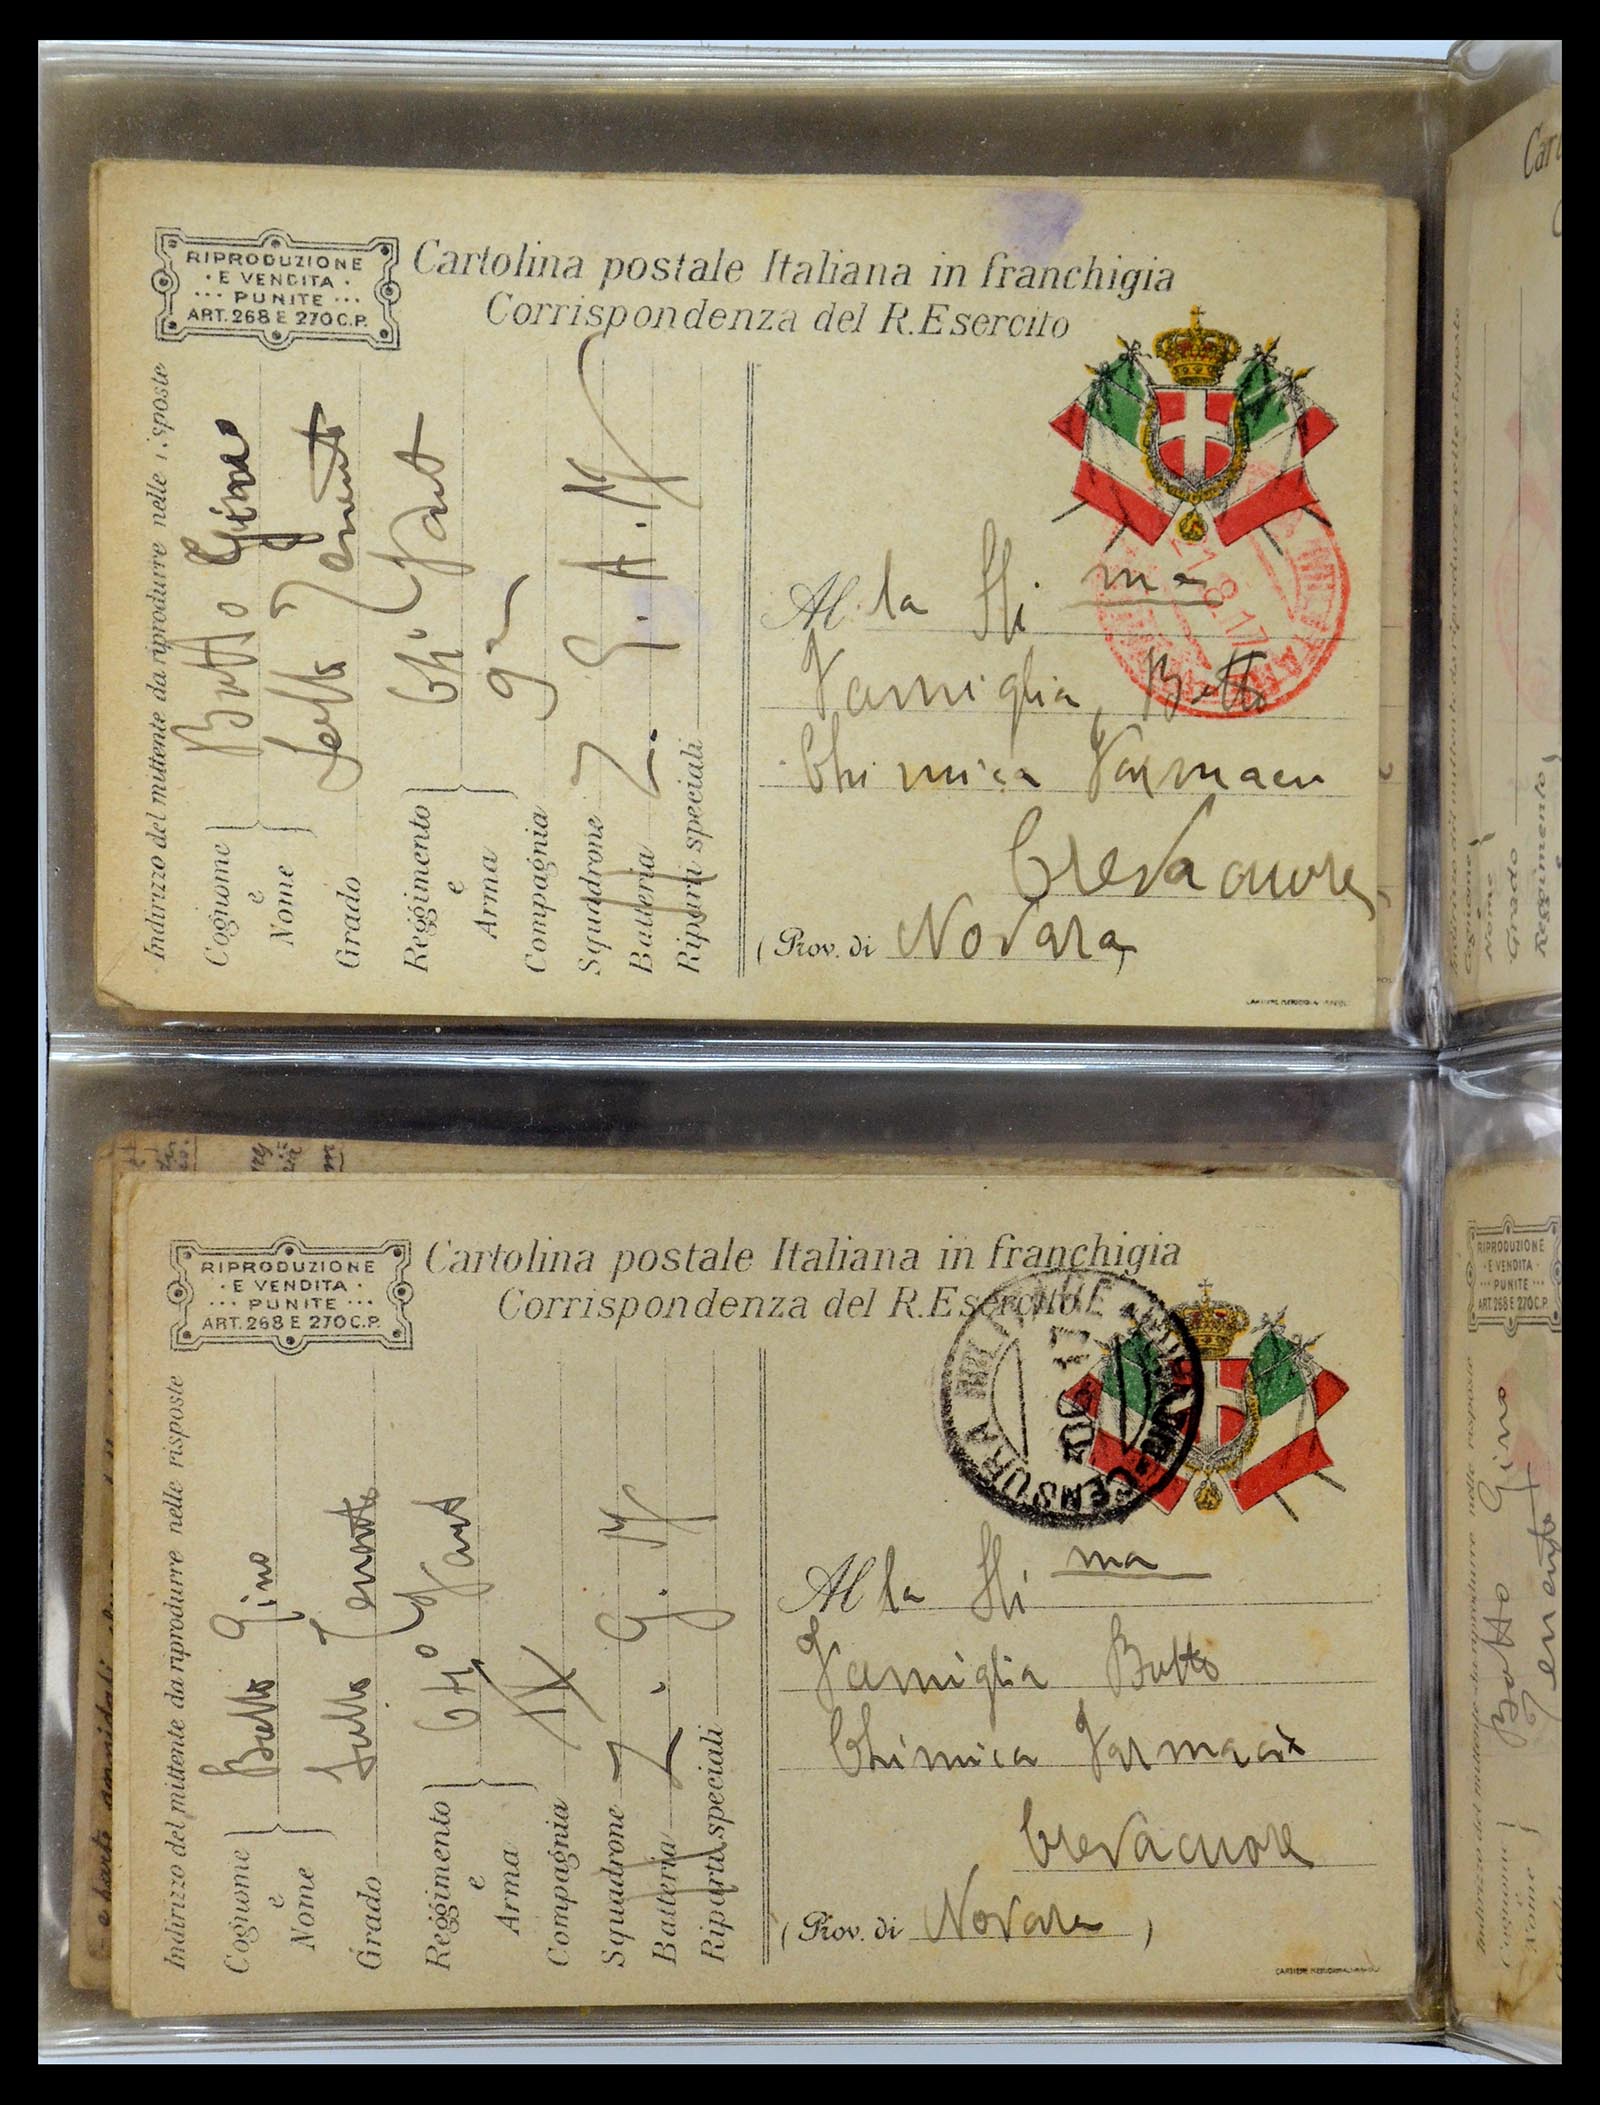 RIPRODUZIONE
· E VENDITA ·
··· PUNITE ···
ART. 268 E 270 C.P.
Cartolina postale Italiana in franchigia
Corrispondenza del R. Esercito
Indirizzo del mittente da riprodurre nelle risposte
Cognome
e
Nome
Botto Gino
Grado
Sotto Tenente
Reggimento
e
Arma
Compagnia
9a
Squadrone
Batteria
Riparti speciali
Z. G. A. M
Al la Ill. ma
Famiglia Botto
Chimica Farmaci
Crevacuore
(Prov. di Novara)
8 17
RIPRODUZIONE
· E VENDITA ·
··· PUNITE ···
ART. 268 E 270 C.P.
Cartolina postale Italiana in franchigia
Corrispondenza del R. Esercito
CENSURA
Indirizzo del mittente da riprodurre nelle risposte
Cognome
e
Nome
Botto Gino
Grado
Sotto Tenente
Reggimento
e
Arma
Compagnia
IX
Squadrone
Batteria
Riparti speciali
Z. G. M
Al la Ill ma
Famiglia Botto
Chimica Farmacia
Crevacuore
(Prov. di Novara)
Cognome
Nome
Grado
Reggimento
RIPRODUZIONE
· E VENDITA ·
··· PUNITE ···
ART. 268 E 270 C.P.
Botto Gino
Tenente